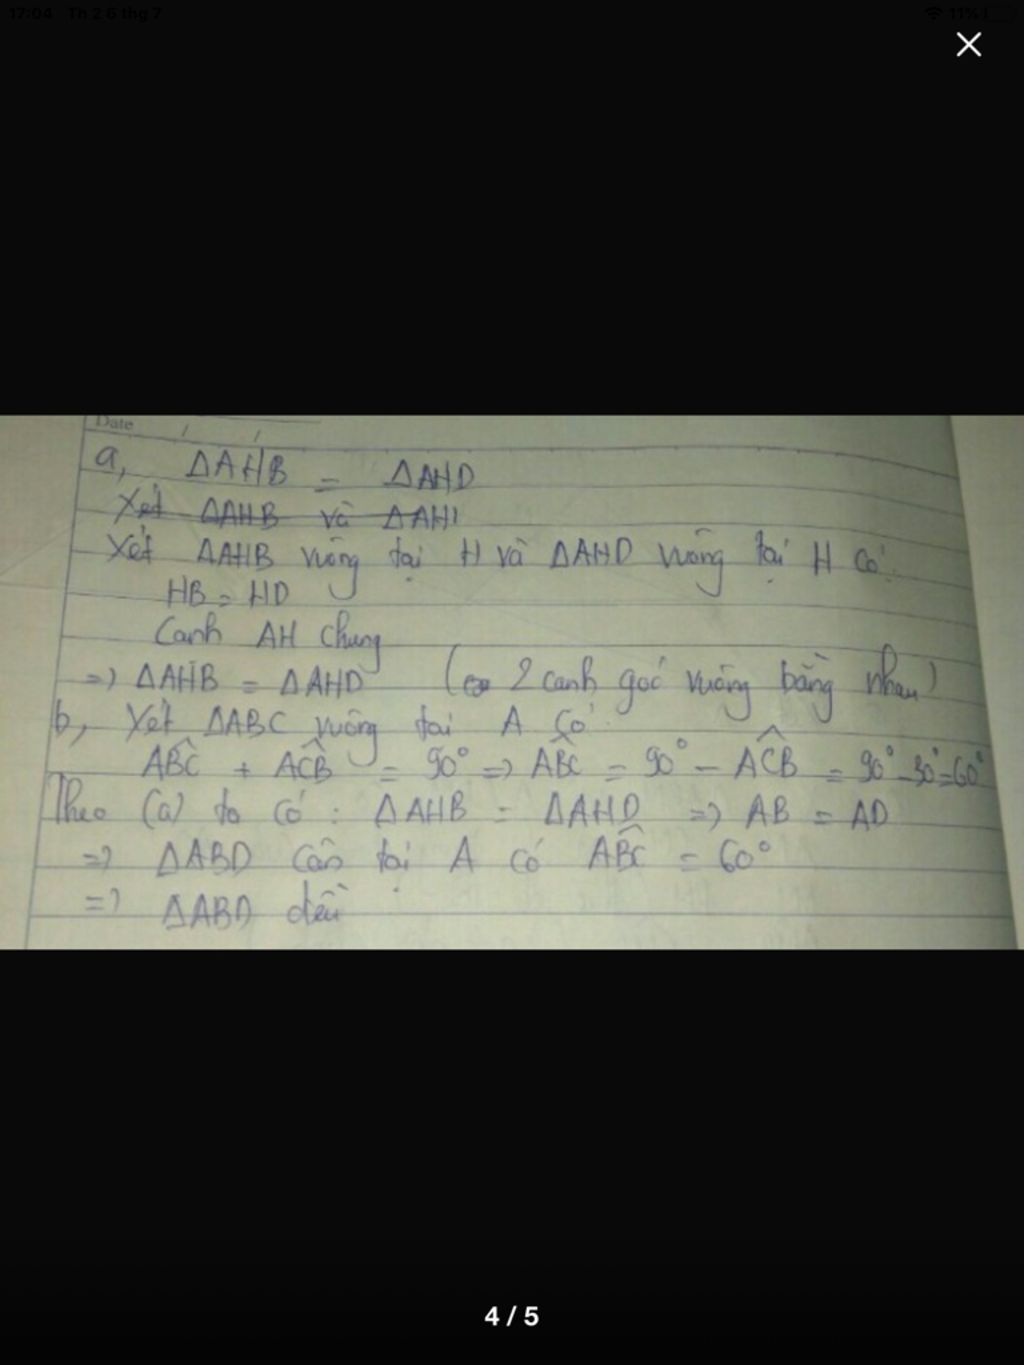 17:04 Th 2 6 thg 7
11%
Date / /
a, ΔAHB = ΔAHD
Xét ΔAHB và ΔAHI
Xét ΔAHB vuông tại H và ΔAHD vuông tại H có:
HB = HD
Canh AH chung
=> ΔAHB = ΔAHD ( 2 canh góc vuông bằng nhau)
b, Xét ΔABC vuông tai A có
ABC + ACB = 90° => ABC = 90° - ACB = 90° - 30° = 60°
Theo (a) ta có : ΔAHB = ΔAHD => AB = AD
=> ΔABD cân tại A có ABC = 60°
=> ΔABD đều
4 / 5